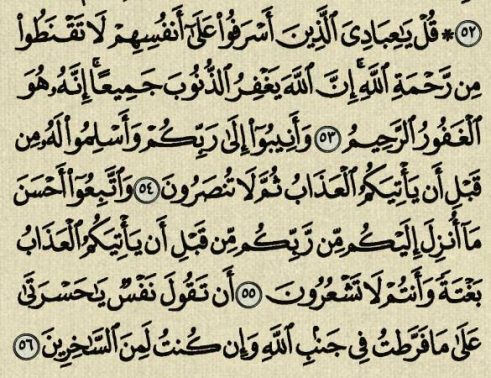 ٥٢ * قُلْ يَٰعِبَادِىَ ٱلَّذِينَ أَسْرَفُوا۟ عَلَىٰٓ أَنفُسِهِمْ لَا تَقْنَطُوا۟
مِن رَّحْمَةِ ٱللَّهِۚ إِنَّ ٱللَّهَ يَغْفِرُ ٱلذُّنُوبَ جَمِيعًاۚ إِنَّهُۥ هُوَ
ٱلْغَفُورُ ٱلرَّحِيمُ ٥٣ وَأَنِيبُوٓا۟ إِلَىٰ رَبِّكُمْ وَأَسْلِمُوا۟ لَهُۥ مِن
قَبْلِ أَن يَأْتِيَكُمُ ٱلْعَذَابُ ثُمَّ لَا تُنصَرُونَ ٥٤ وَٱتَّبِعُوٓا۟ أَحْسَنَ
مَآ أُنزِلَ إِلَيْكُم مِّن رَّبِّكُم مِّن قَبْلِ أَن يَأْتِيَكُمُ ٱلْعَذَابُ
بَغْتَةً وَأَنتُمْ لَا تَشْعُرُونَ ٥٥ أَن تَقُولَ نَفْسٌ يَٰحَسْرَتَىٰ
عَلَىٰ مَا فَرَّطتُ فِى جَنۢبِ ٱللَّهِ وَإِن كُنتُ لَمِنَ ٱلسَّٰخِرِينَ ٥٦